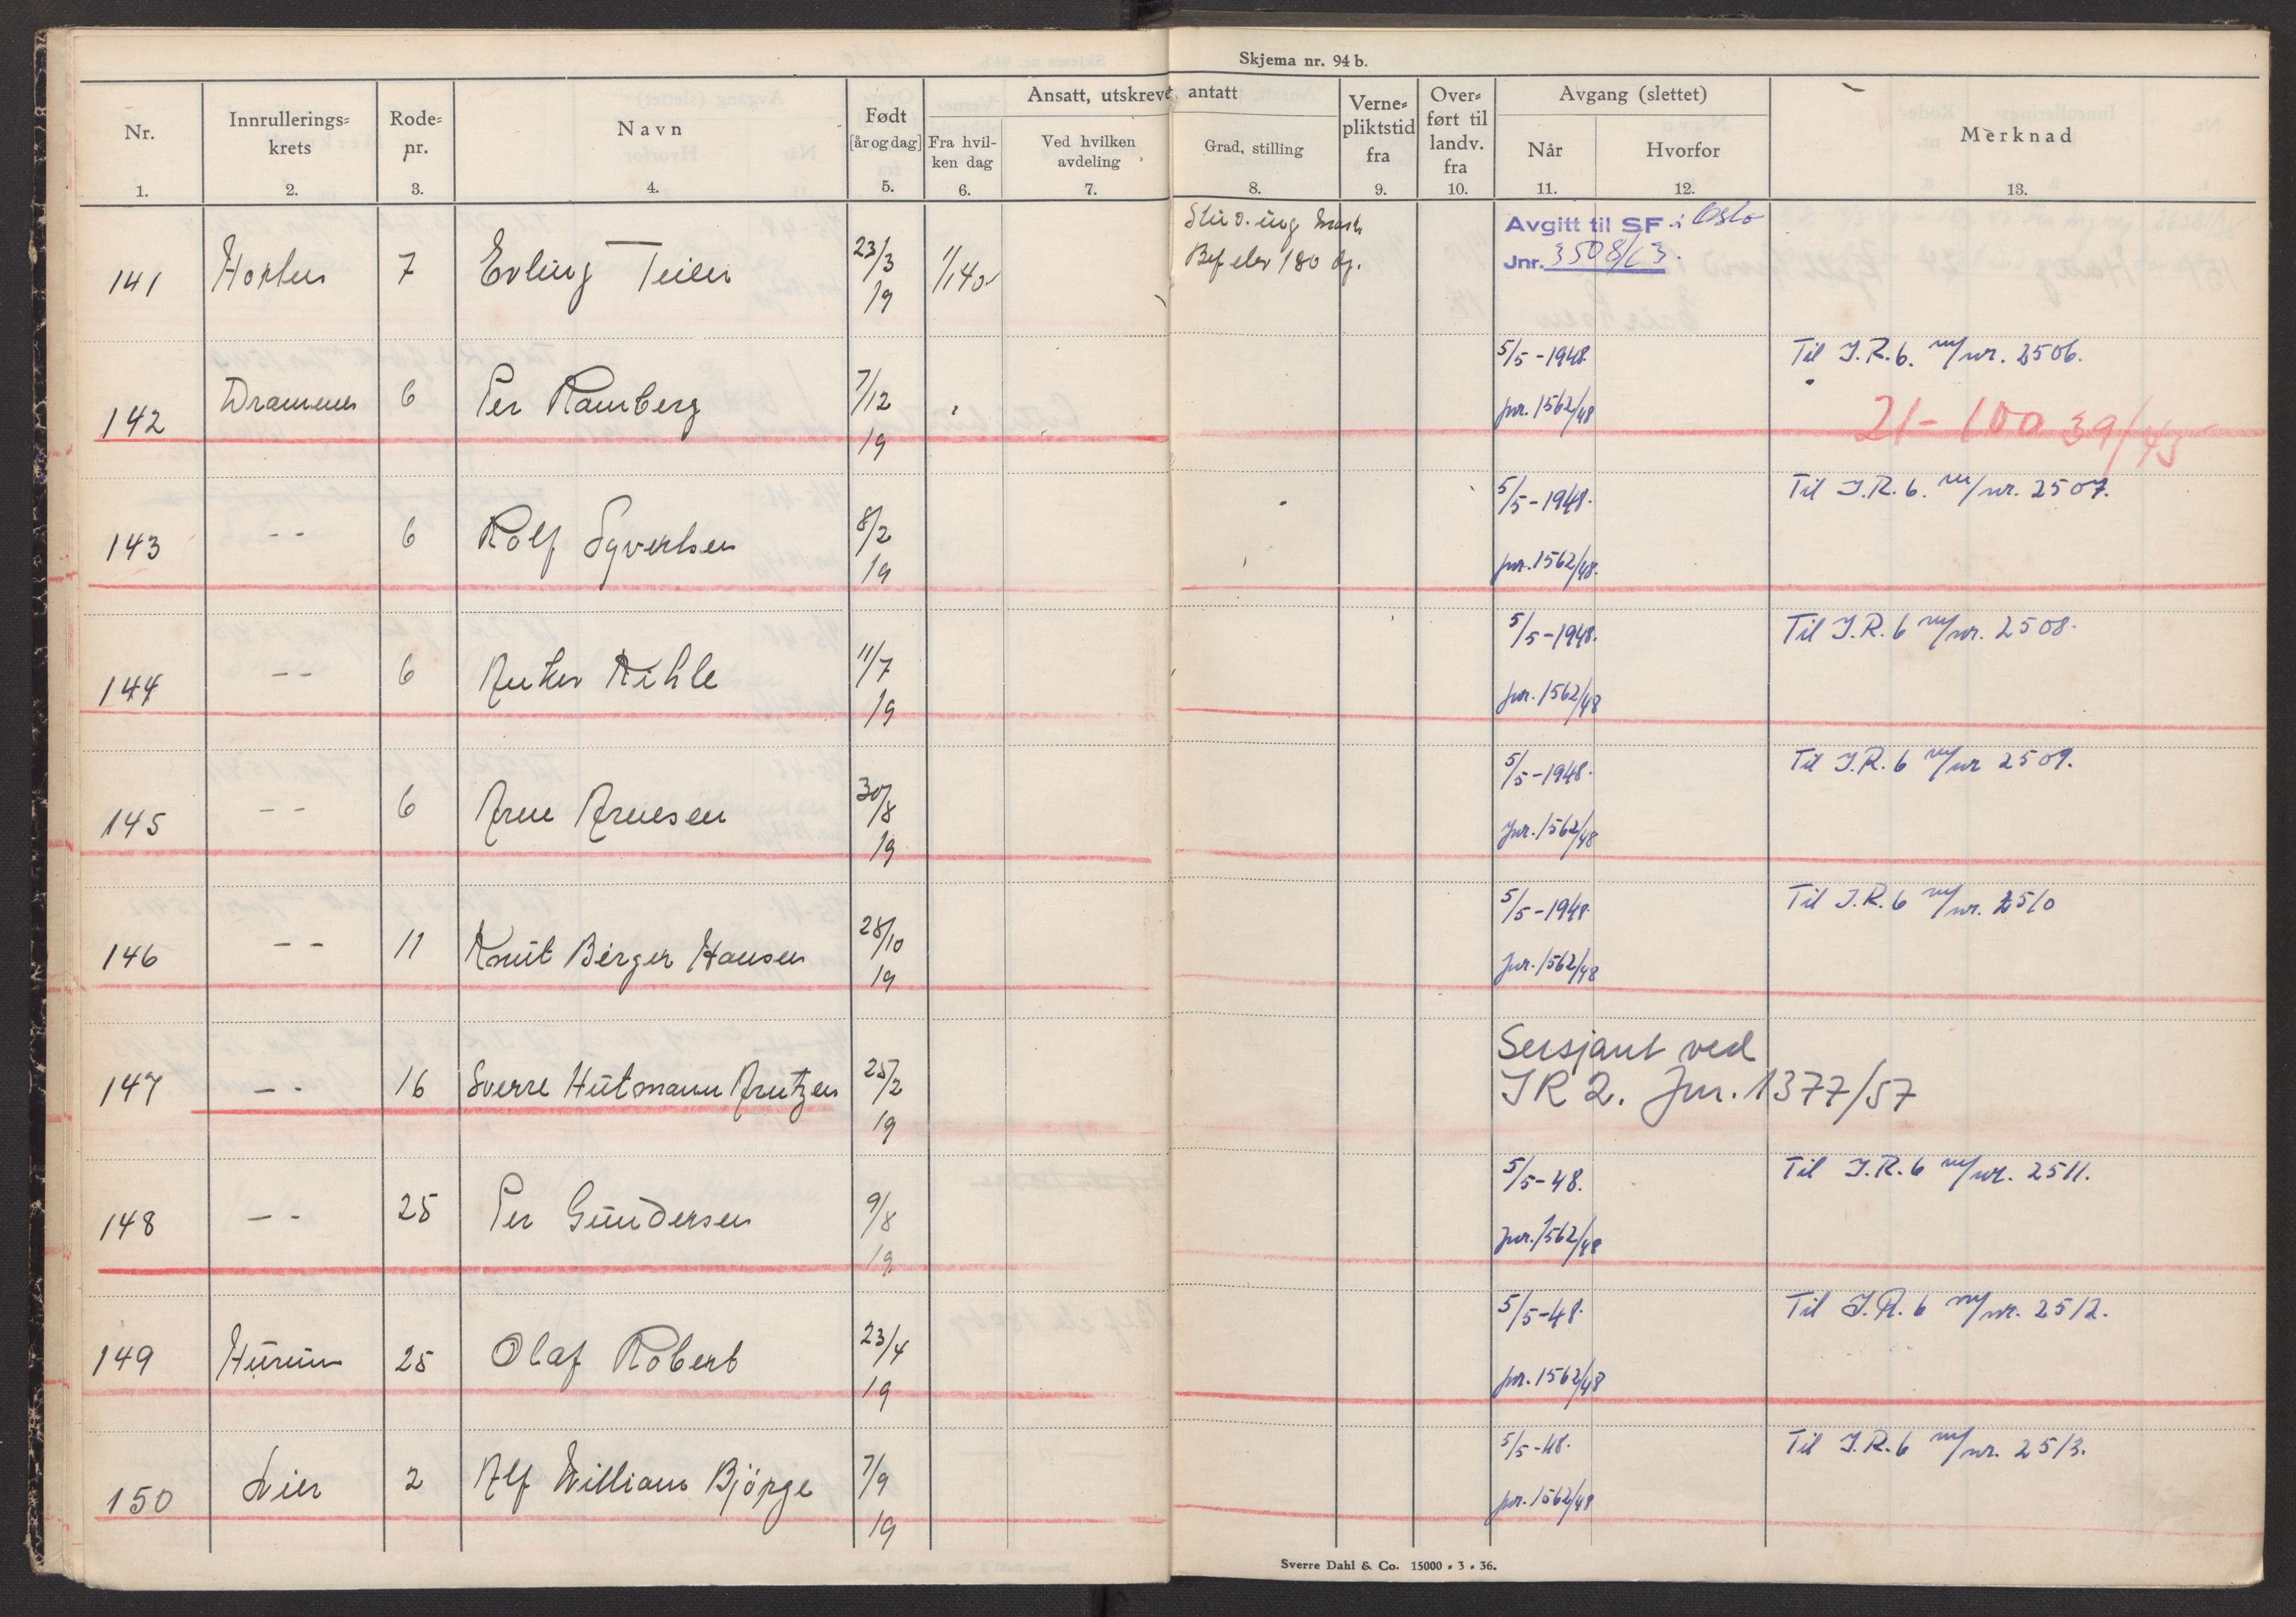 Skjema nr. 94 b.
Nr. Innrullerings= krets Rode= nr. Navn Født [år og dag] Ansatt, utskrevet, antatt Verne= pliktstid fra Over= ført til landv. fra Avgang (slettet) Merknad
Fra hvil- ken dag Ved hvilken avdeling Grad, stilling Når Hvorfor
1. 2. 3. 4. 5. 6. 7. 8. 9. 10. 11. 12. 13.
141 Horten 7 Erling Teien 23/3 19 1/1 40 Stud. ing
Bef elev 180 dg.
Avgitt til SF i Oslo
Jnr. 3508/63.
142 Drammen 6 Per Ramberg 7/12 19 5/5-1948 Til I.R.6. m/nr. 2506.
jnr. 1562/48 21-100 39/45
143 -- 6 Rolf Syvertsen 8/2 19 5/5-1948. Til I.R.6. m/nr. 2507.
jnr. 1562/48.
144 -- 6 Anker Kihle 11/7 19 5/5-1948. Til I.R.6 m/nr. 2508.
jnr. 1562/48
145 -- 6 Arne Arnesen 30/8 19 5/5-1948. Til I.R.6 m/nr 2509.
Jnr. 1562/48
146 -- 11 Knut Birger Hansen 28/10 19 5/5-1948. Til I.R.6 m/nr. 2510
Jnr. 1562/48
147 -- 16 Sverre Hütmann Arntzen 25/2 19 Sersjant ved
IR 2. Jnr. 1377/57
148 -- 25 Per Gundersen 9/8 19 5/5-48. Til I.R.6 m/nr. 2511.
Jnr. 1562/48
149 Hurum 25 Olaf Robert 23/4 19 5/5-48. Til I.R.6 m/nr. 2512.
jnr. 1562/48
150 Lier 2 Alf William Bjørge 7/9 19 5/5-48. Til I.R.6 m/nr. 2513.
jnr. 1562/48
Sverre Dahl & Co. 15000 . 3 . 36.